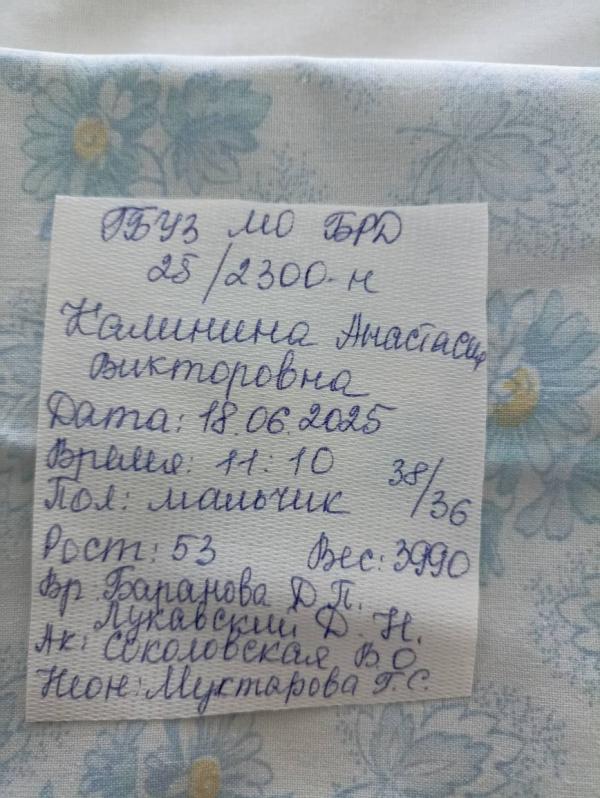 ГБУЗ МО БРД
25/2300-н
Калинина Анастасия
Викторовна
Дата: 18.06.2025
Время: 11:10
38/36
Пол: мальчик
Рост: 53 Вес: 3990
Вр Баранова Д.П.
Лукавский Д.Н.
Ак: Соколовская В.О
Неон: Мухтарова Г.С.